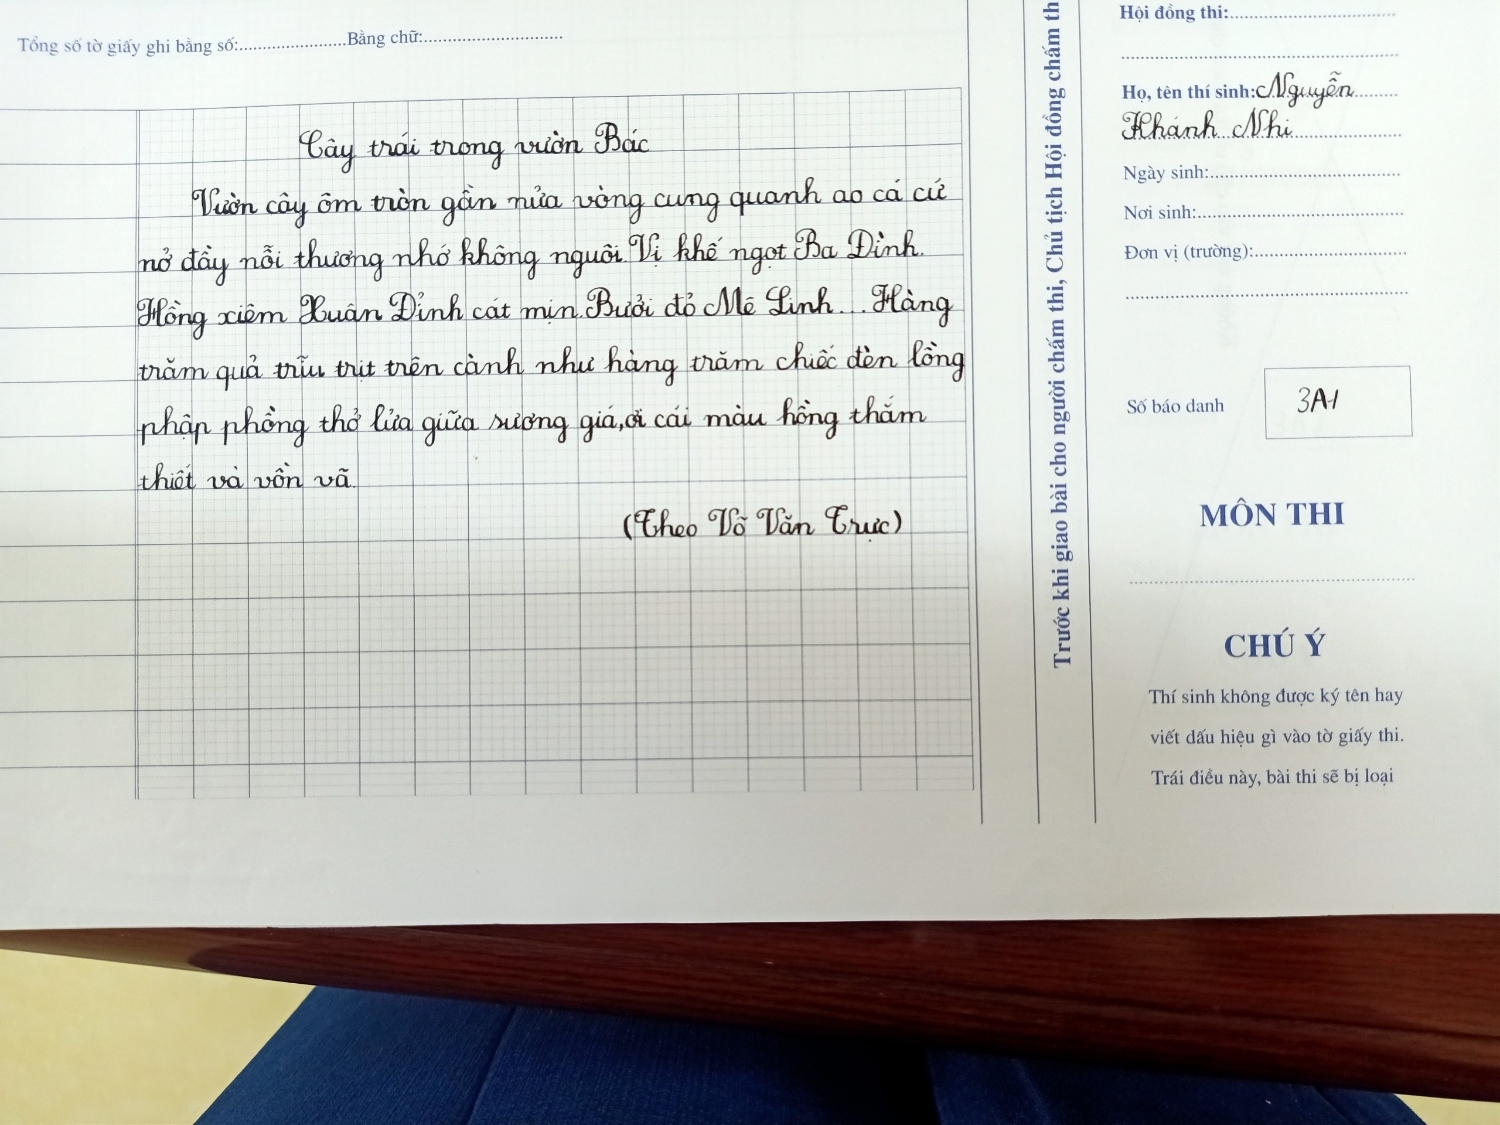 Tổng số tờ giấy ghi bằng số:......................Bằng chữ:.............................
Cây trái trong vườn Bác
Vườn cây ôm tròn gần nửa vòng cung quanh ao cá cứ
nở đầy nỗi thương nhớ không nguôi. Vị khế ngọt Ba Đình.
Hồng xiêm Xuân Đỉnh cát mịn. Bưởi đỏ Mê Linh... Hàng
trăm quả trĩu trịt trên cành như hàng trăm chiếc đèn lồng
phập phồng thở lửa giữa sương giá, ơi cái màu hồng thắm
thiết và vồn vã.
(Theo Võ Văn Trực)
Trước khi giao bài cho người chấm thi, Chủ tịch Hội đồng chấm th
Hội đồng thi:..................................
Họ, tên thí sinh: Nguyễn
Khánh Nhi
Ngày sinh:.......................................
Nơi sinh:.........................................
Đơn vị (trường):...............................
Số báo danh
3A1
MÔN THI
CHÚ Ý
Thí sinh không được ký tên hay
viết dấu hiệu gì vào tờ giấy thi.
Trái điều này, bài thi sẽ bị loại